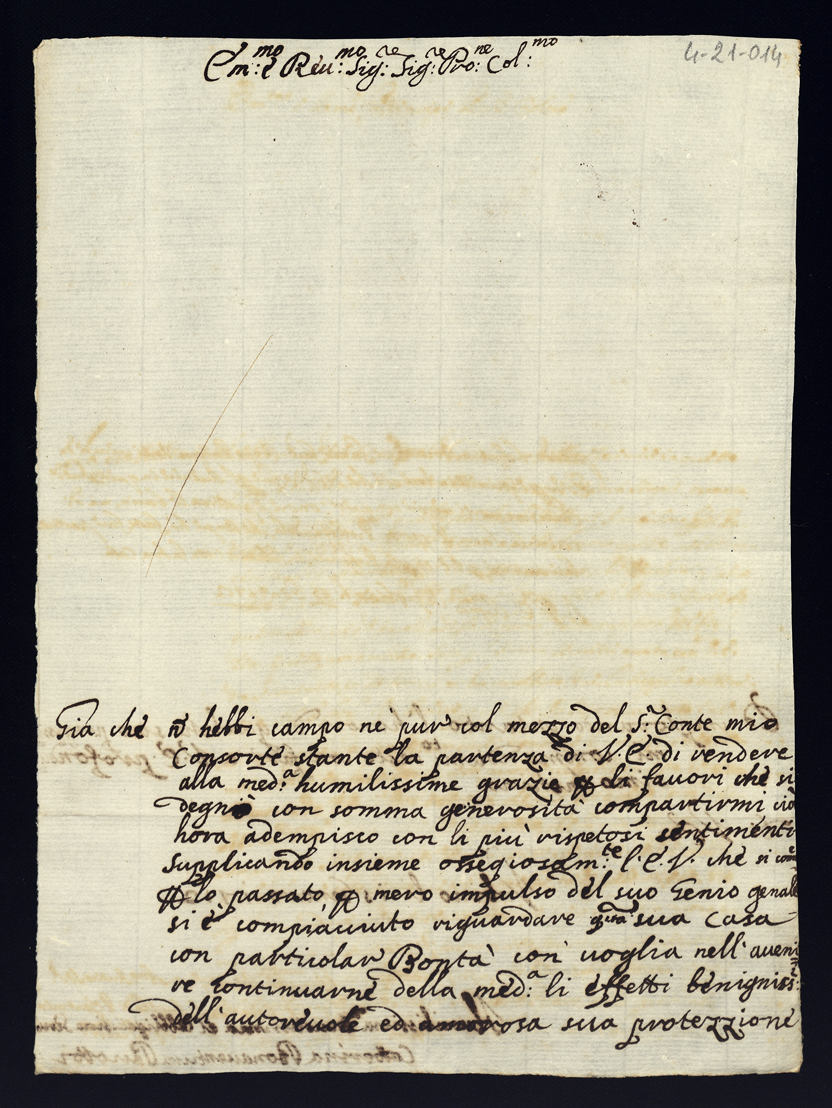 4-21-014
Em:mo e Reu:mo Sig:re Sig:re Pro:ne Col:mo
Gia che ñ hebbi campo ne pur col mezzo del S:r Conte mio
Consorte stante la partenza di V. E. di rendere
alla med:a humilissime grazie p li fauori che si
degnò con somma generosità compartirmi ciò
hora adempisco con li più rispetosi sentimenti
supplicando insieme ossegiosam:te l'E. V. che si come
p lo passato, p mero impulso del suo Genio genale
si è compiacciuto riguardare qta sua Casa
con particolar Bontà così uoglia nell'aueni
re continuarne della med:a li effetti benigniss:i
dell'autoreuole ed amorosa sua protezzione
Catterina Bonauentura